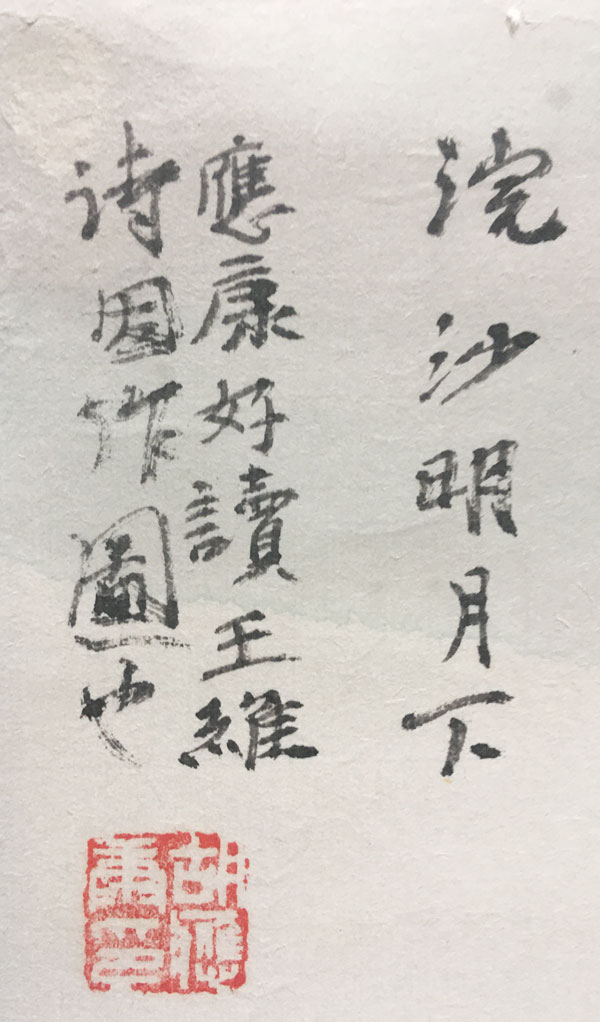 浣沙明月下
應康好讀王維
诗因作圖也
胡應康印